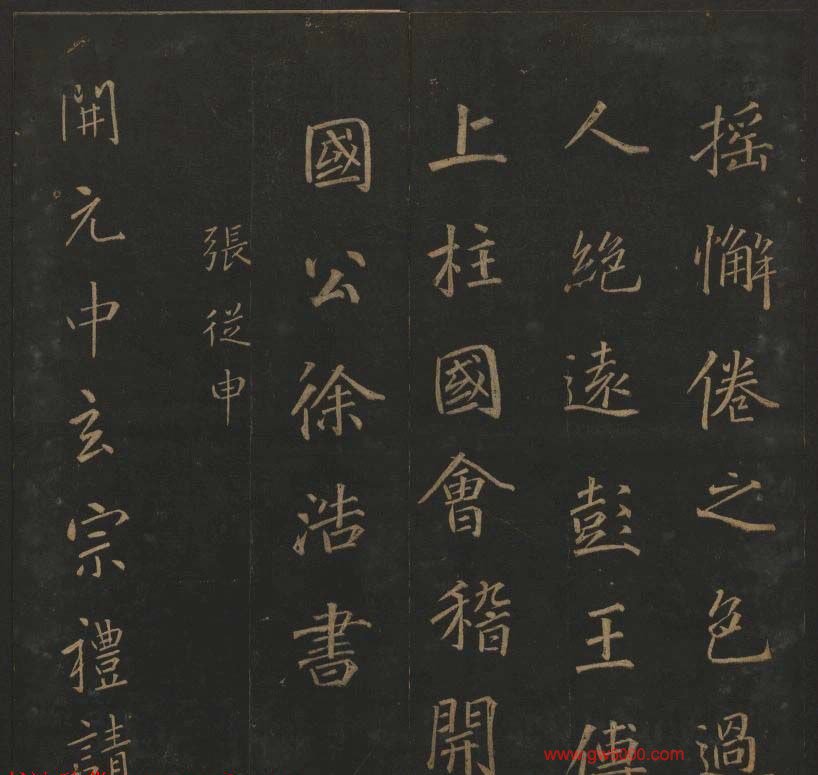 搖懈倦之色過
人絶遠彭王傅
上柱國會稽開
國公徐浩書
張從申
開元中玄宗禮請
www.gw5000.com